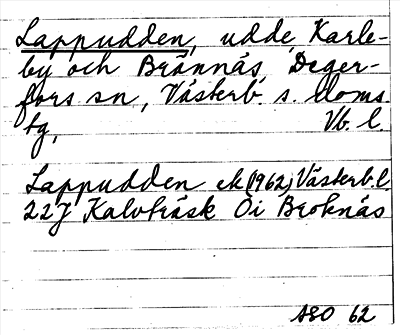 Lappudden, udde, Karle-
by och Brännäs, Deger-
fors sn, Västerb. s. lloms.
tg, Vb. l.
Lappudden ek (1962) Västerb.l
22J Kalvträsk Öi Broknäs
ASO 62